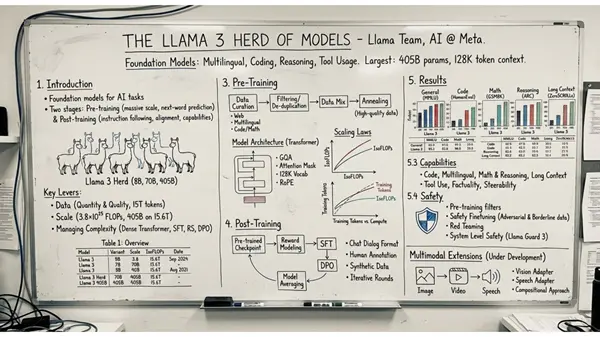 THE LLAMA 3 HERD OF MODELS - Llama Team, AI @ Meta.
Foundation Models: Multilingual, Coding, Reasoning, Tool Usage. Largest: 405B params, 128K token context.
1. Introduction
• Foundation models for AI tasks
• Two stages: Pre-training (massive scale, next-word prediction)
& Post-training (instruction following, alignment, capabilities)
Llama 3 Herd (8B, 70B, 405B)
Key Levers:
• Data (Quantity & Quality, 15T tokens)
• Scale (3.8×10²⁵ FLOPs, 405B on 15.6T)
• Managing Complexity (Dense Transformer, SFT, RS, DPO)
Table 1: Overview
Model Variant Scale FLOPs Date
Llama 3 8B 15.6T Sep 2024
Llama 3 15.6T
Llama 3 15.6T
Llama 3 Herd 70B 405B 15.6T
Llama 3 405B 405B 405B 15.6T
3. Pre-Training
Data Curation
Filtering/De-duplication
Data Mix
Annealing
• Web
• Multilingual
• Code/Math
(High-quality data)
Model Architecture (Transformer)
• GQA
• Attention Mask
• 128K Vocab
• RoPE
Scaling Laws
IsoFLOPs
IsoFLOPs
Training Tokens
Training Tokens
IsoFLOPs
Training Tokens vs Compute
4. Post-Training
Pre-trained Checkpoint
Reward Modeling
SFT
DPO
Model Averaging
• Chat Dialog Format
• Human Annotation
• Synthetic Data
• Iterative Rounds
5. Results
General (MMLU)
Code (HumanEval)
Math (GSM8K)
Reasoning (ARC)
Long Context
Llama 3
Llama 3
Llama 3
Llama 3
5.3 Capabilities
• Code, Multilingual, Math & Reasoning, Long Context
• Tool Use, Factuality, Steerability
5.4 Safety
• Pre-training filters
• Safety Finetuning (Adversarial & Borderline data)
• Red Teaming
• System Level Safety (Llama Guard 3)
Multimodal Extensions (Under Development)
Image
Video
Speech
• Vision Adapter
• Speech Adapter
• Compositional Approach